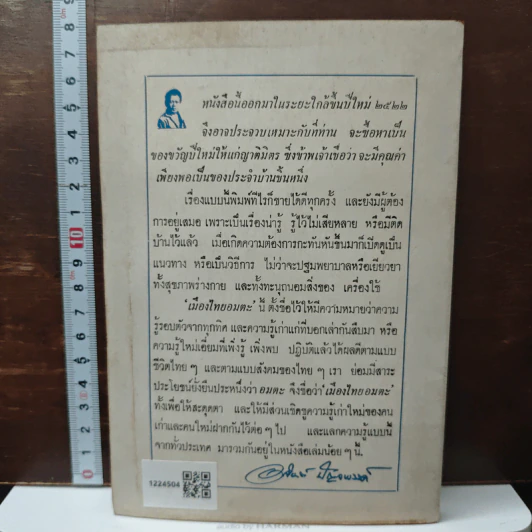 หนังสือนี้ออกมาในระยะใกล้ขึ้นปีใหม่ ๒๕๒๒
จึงอาจประจวบเหมาะกับที่ท่าน จะซื้อหาเป็น
ของขวัญปีใหม่ให้แก่ญาติมิตร ซึ่งข้าพเจ้าเชื่อว่า จะมีคุณค่า
เพียงพอเป็นของประจำบ้านชิ้นหนึ่ง
เรื่องแบบนี้พิมพ์ทีไรก็ขายได้ดีทุกครั้ง และยังมีผู้ต้อง
การอยู่เสมอ เพราะเป็นเรื่องน่ารู้ รู้ไว้ไม่เสียหลาย หรือมีติด
บ้านไว้แล้ว เมื่อเกิดความต้องการกะทันหันขึ้นมาก็เปิดดูเป็น
แนวทาง หรือเป็นวิธีการ ไม่ว่าจะปฐมพยาบาลหรือเยียวยา
ทั้งสุขภาพร่างกาย และทั้งทะนุถนอมสิ่งของ เครื่องใช้
'เมืองไทยอมตะ' นี้ ตั้งชื่อไว้ให้มีความหมายว่าความ
รู้รอบตัวจากทุกทิศ และความรู้เก่าแก่ที่บอกเล่ากันสืบมา หรือ
ความรู้ใหม่เอี่ยมที่เพิ่งรู้ เพิ่งพบ ปฏิบัติแล้วได้ผลดีตามแบบ
ชีวิตไทย ๆ และตามแบบสังคมของไทย ๆ เรา ย่อมมีสาระ
ประโยชน์ยั่งยืนประหนึ่งว่า อมตะ จึงชื่อว่า 'เมืองไทยอมตะ'
ทั้งเพื่อให้สะดุดตา และให้มีส่วนเชิดชูความรู้เก่าใหม่ของคน
เก่าและคนใหม่ฝากกันไว้ต่อ ๆ ไป และแลกความรู้แบบนี้
จากทั่วประเทศ มารวมกันอยู่ในหนังสือเล่มน้อย ๆ นี้
1224504